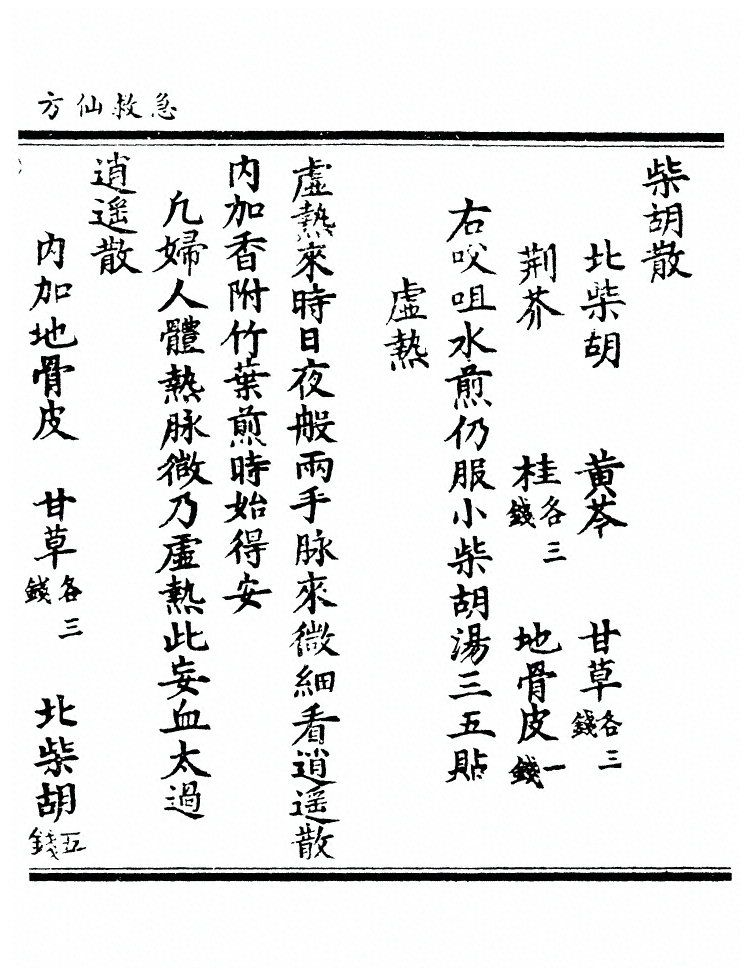 急救仙方
柴胡散
北柴胡 黄芩 甘草各三錢
荆芥 桂各三錢 地骨皮一錢
右㕮咀水煎仍服小柴胡湯三五貼
虚熱
虚熱來時日夜般兩手脉來微細看逍遥散
内加香附竹葉煎時始得安
凡婦人體熱脉微乃虚熱此妄血太過
逍遥散
内加地骨皮 甘草各三錢 北柴胡五錢